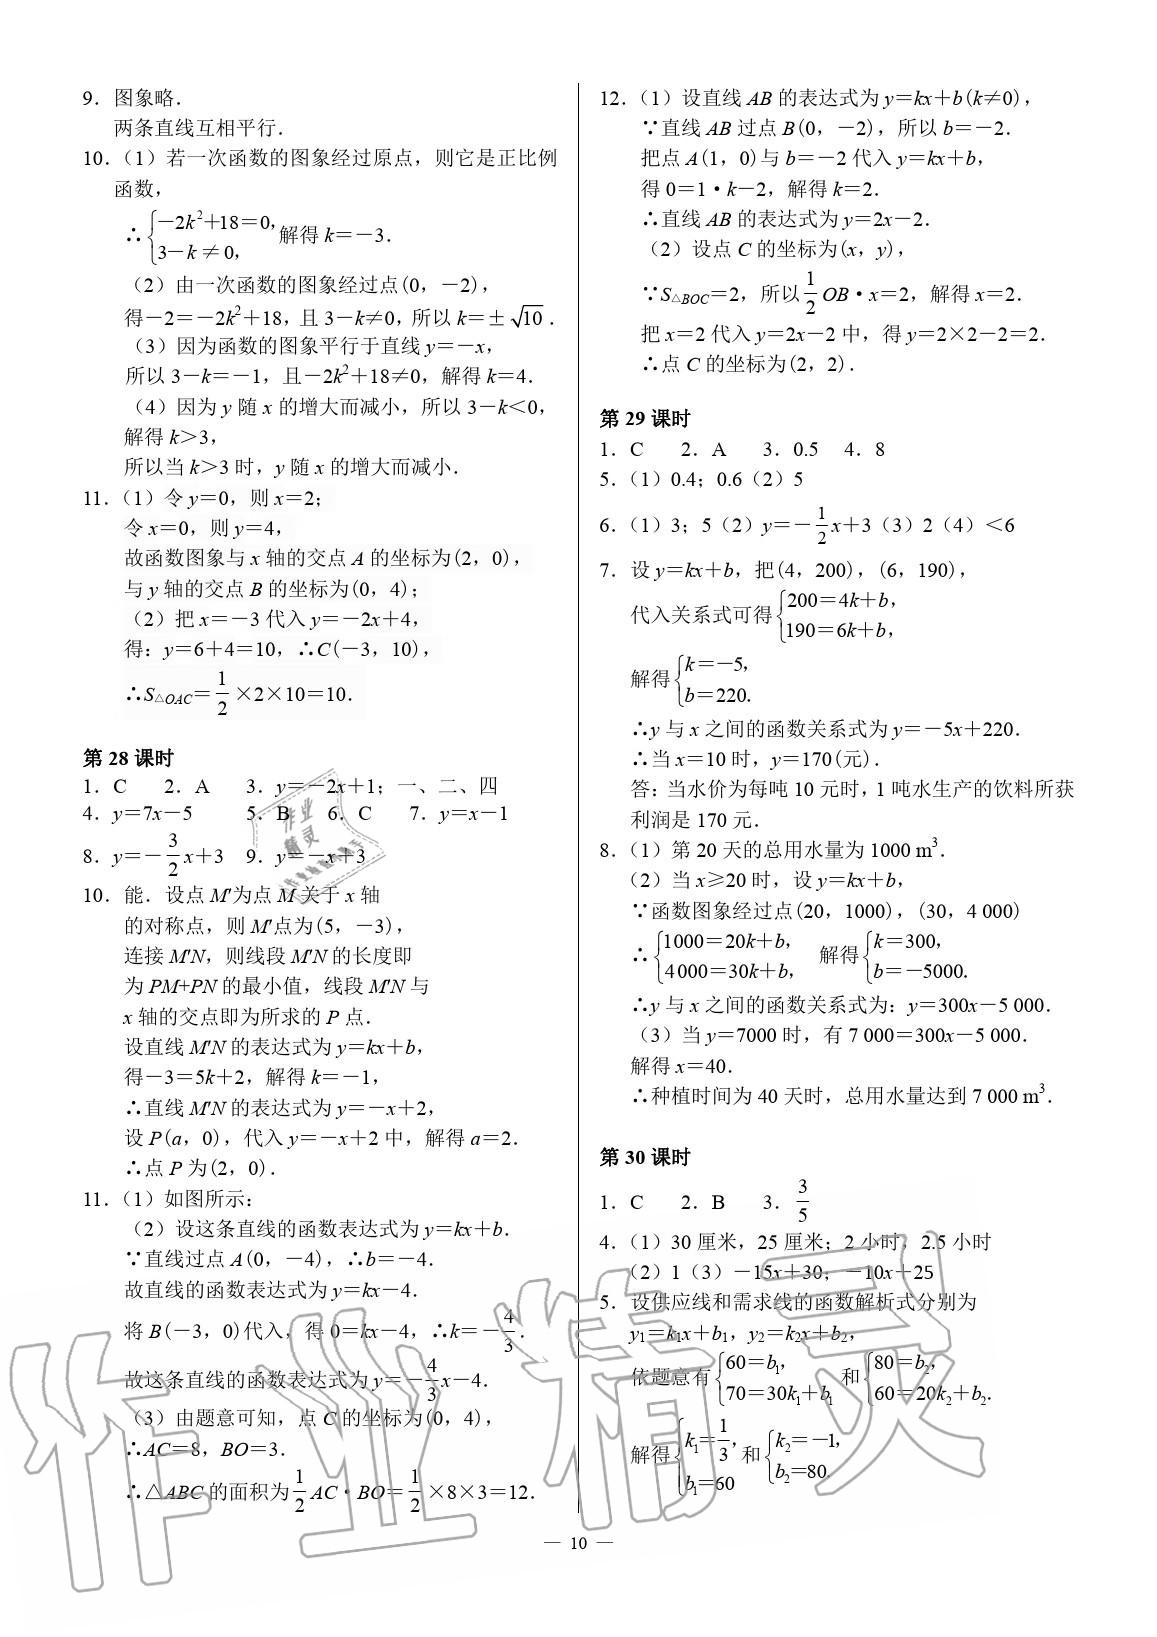 9．图象略．
两条直线互相平行．
10．（1）若一次函数的图象经过原点，则它是正比例
函数，
∴{−2k²+18＝0， 3−k ≠ 0， 解得 k＝−3．
（2）由一次函数的图象经过点(0，−2)，
得−2＝−2k²＋18，且 3−k≠0，所以 k＝±√10．
（3）因为函数的图象平行于直线 y＝−x，
所以 3−k＝−1，且−2k²＋18≠0，解得 k＝4．
（4）因为 y 随 x 的增大而减小，所以 3−k＜0，
解得 k＞3，
所以当 k＞3 时，y 随 x 的增大而减小．
11．（1）令 y＝0，则 x＝2；
令 x＝0，则 y＝4，
故函数图象与 x 轴的交点 A 的坐标为(2，0)，
与 y 轴的交点 B 的坐标为(0，4)；
（2）把 x＝−3 代入 y＝−2x＋4，
得：y＝6＋4＝10，∴C(−3，10)，
∴S△OAC＝1/2×2×10＝10．
第 28 课时
1．C 2．A 3．y＝−2x＋1；一、二、四
4．y＝7x−5 5．B 6．C 7．y＝x−1
8．y＝−3/2x＋3 9．y＝−x＋3
10．能．设点 M′为点 M 关于 x 轴
的对称点，则 M′点为(5，−3)，
连接 M′N，则线段 M′N 的长度即
为 PM+PN 的最小值，线段 M′N 与
x 轴的交点即为所求的 P 点．
设直线 M′N 的表达式为 y＝kx＋b，
得−3＝5k＋2，解得 k＝−1，
∴直线 M′N 的表达式为 y＝−x＋2，
设 P(a，0)，代入 y＝−x＋2 中，解得 a＝2．
∴点 P 为(2，0)．
11．（1）如图所示：
（2）设这条直线的函数表达式为 y＝kx＋b．
∵直线过点 A(0，−4)，∴b＝−4．
故直线的函数表达式为 y＝kx−4．
将 B(−3，0)代入，得 0＝kx−4，∴k＝−4/3．
故这条直线的函数表达式为 y＝−4/3x−4．
（3）由题意可知，点 C 的坐标为(0，4)，
∴AC＝8，BO＝3．
∴△ABC 的面积为1/2AC·BO＝1/2×8×3＝12．
12．（1）设直线 AB 的表达式为 y＝kx＋b(k≠0)，
∵直线 AB 过点 B(0，−2)，所以 b＝−2．
把点 A(1，0)与 b＝−2 代入 y＝kx＋b，
得 0＝1·k−2，解得 k＝2．
∴直线 AB 的表达式为 y＝2x−2．
（2）设点 C 的坐标为(x，y)，
∵S△BOC＝2，所以1/2OB·x＝2，解得 x＝2．
把 x＝2 代入 y＝2x−2 中，得 y＝2×2−2＝2．
∴点 C 的坐标为(2，2)．
第 29 课时
1．C 2．A 3．0.5 4．8
5．（1）0.4；0.6（2）5
6．（1）3；5（2）y＝−1/2x＋3（3）2（4）＜6
7．设 y＝kx＋b，把(4，200)，(6，190)，
代入关系式可得{200＝4k＋b， 190＝6k＋b，
解得{k＝−5， b＝220．
∴y 与 x 之间的函数关系式为 y＝−5x＋220．
∴当 x＝10 时，y＝170(元)．
答：当水价为每吨 10 元时，1 吨水生产的饮料所获
利润是 170 元．
8．（1）第 20 天的总用水量为 1000 m³．
（2）当 x≥20 时，设 y＝kx＋b，
∵函数图象经过点(20，1000)，(30，4 000)
∴{1000＝20k＋b， 4 000＝30k＋b， 解得{k＝300， b＝−5000．
∴y 与 x 之间的函数关系式为：y＝300x−5 000．
（3）当 y＝7000 时，有 7 000＝300x−5 000．
解得 x＝40．
∴种植时间为 40 天时，总用水量达到 7 000 m³．
第 30 课时
1．C 2．B 3．3/5
4．（1）30 厘米，25 厘米；2 小时，2.5 小时
（2）1（3）−15x＋30；−10x＋25
5．设供应线和需求线的函数解析式分别为
y₁＝k₁x＋b₁，y₂＝k₂x＋b₂，
依题意有{60＝b₁， 70＝30k₁＋b₁ 和{80＝b₂， 60＝20k₂＋b₂．
解得{k₁＝1/3， b₁＝60 和{k₂＝−1， b₂＝80．
— 10 —
作业精灵
作业精灵